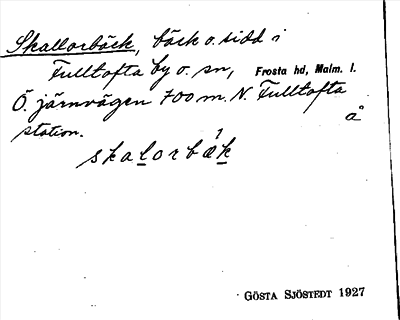 Skallorbäck, bäck o. sidd i
Fulltofta by o. sn, Frosta hd, Malm. l.
Ö. järnvägen 700 m. N. Fulltofta
station. å
skalorbæ´k
GÖSTA SJÖSTEDT 1927